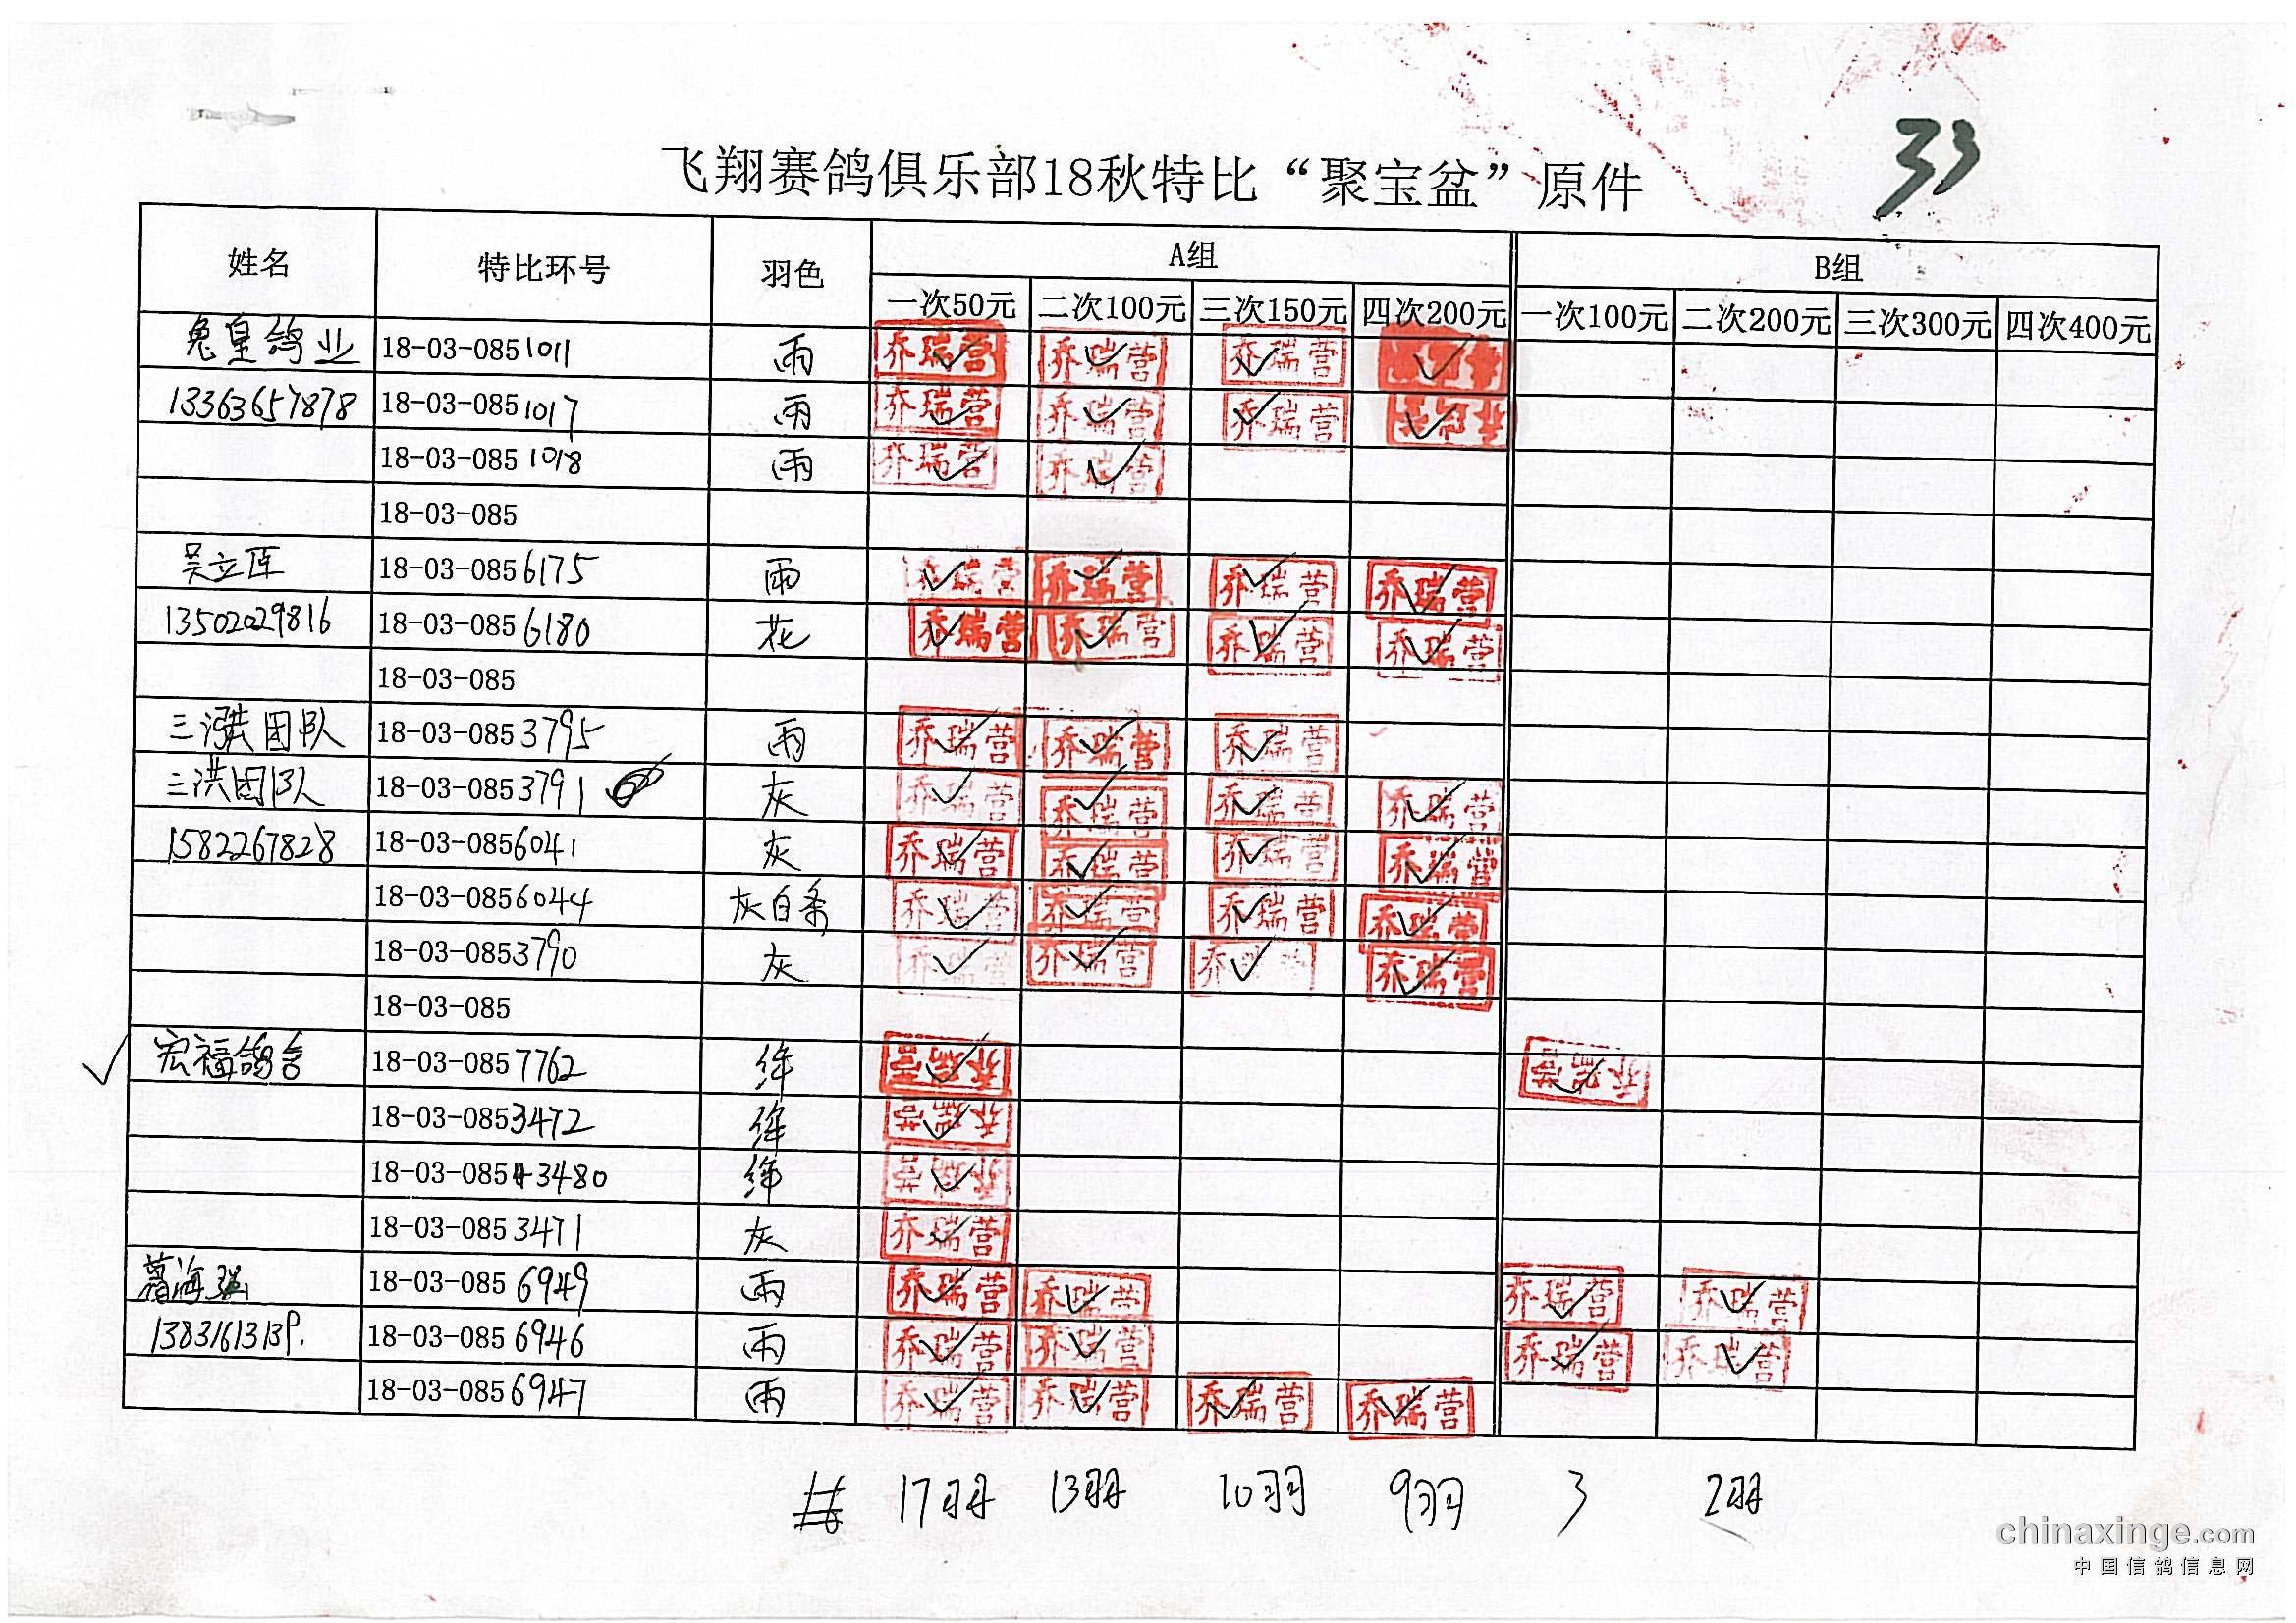 33
飞翔赛鸽俱乐部18秋特比“聚宝盆”原件
姓名 特比环号 羽色 A组 B组
一次50元 二次100元 三次150元 四次200元 一次100元 二次200元 三次300元 四次400元
兔皇鸽业 18-03-0851011 雨 乔瑞营✓ 乔瑞营✓ 乔瑞营✓ ✓
13363657878 18-03-0851017 雨 乔瑞营✓ 乔瑞营✓ 乔瑞营✓ ✓
18-03-0851018 雨 乔瑞营✓ 乔瑞营✓
18-03-085
吴立 18-03-0856175 雨 乔瑞营✓ 乔瑞营✓ 乔瑞营✓ 乔瑞营✓
13502029816 18-03-0856180 花 乔瑞营✓ 乔瑞营✓ 乔瑞营✓ 乔瑞营✓
18-03-085
三洪团队 18-03-0853795 雨 乔瑞营✓ 乔瑞营✓ 乔瑞营✓
三洪团队 18-03-0853791 灰 乔瑞营✓ 乔瑞营✓ 乔瑞营✓ 乔瑞营✓
15822267828 18-03-0856041 灰 乔瑞营✓ 乔瑞营✓ 乔瑞营✓ 乔瑞营✓
18-03-0856044 灰白条 乔瑞营✓ 乔瑞营✓ 乔瑞营✓ 乔瑞营✓
18-03-0853790 灰 乔瑞营✓ 乔瑞营✓ 乔✓ 乔瑞营✓
18-03-085
✓ 宏福鸽舍 18-03-0857762 绛 乔瑞营✓ 乔瑞营✓
18-03-0853472 绛 乔瑞营✓
18-03-0853480 绛 乔瑞营✓
18-03-0853471 灰 乔瑞营✓
海强 18-03-0856949 雨 乔瑞营✓ 乔瑞营✓ 乔瑞营✓ 乔瑞营✓
18-03-0856946 雨 乔瑞营✓ 乔瑞营✓ 乔瑞营✓ 乔瑞营✓
18-03-0856947 雨 乔瑞营✓ 乔瑞营✓ 乔瑞营✓ 乔瑞营✓
共 17羽 13羽 10羽 9羽 3 2羽
chinaxinge.com
中国信鸽信息网